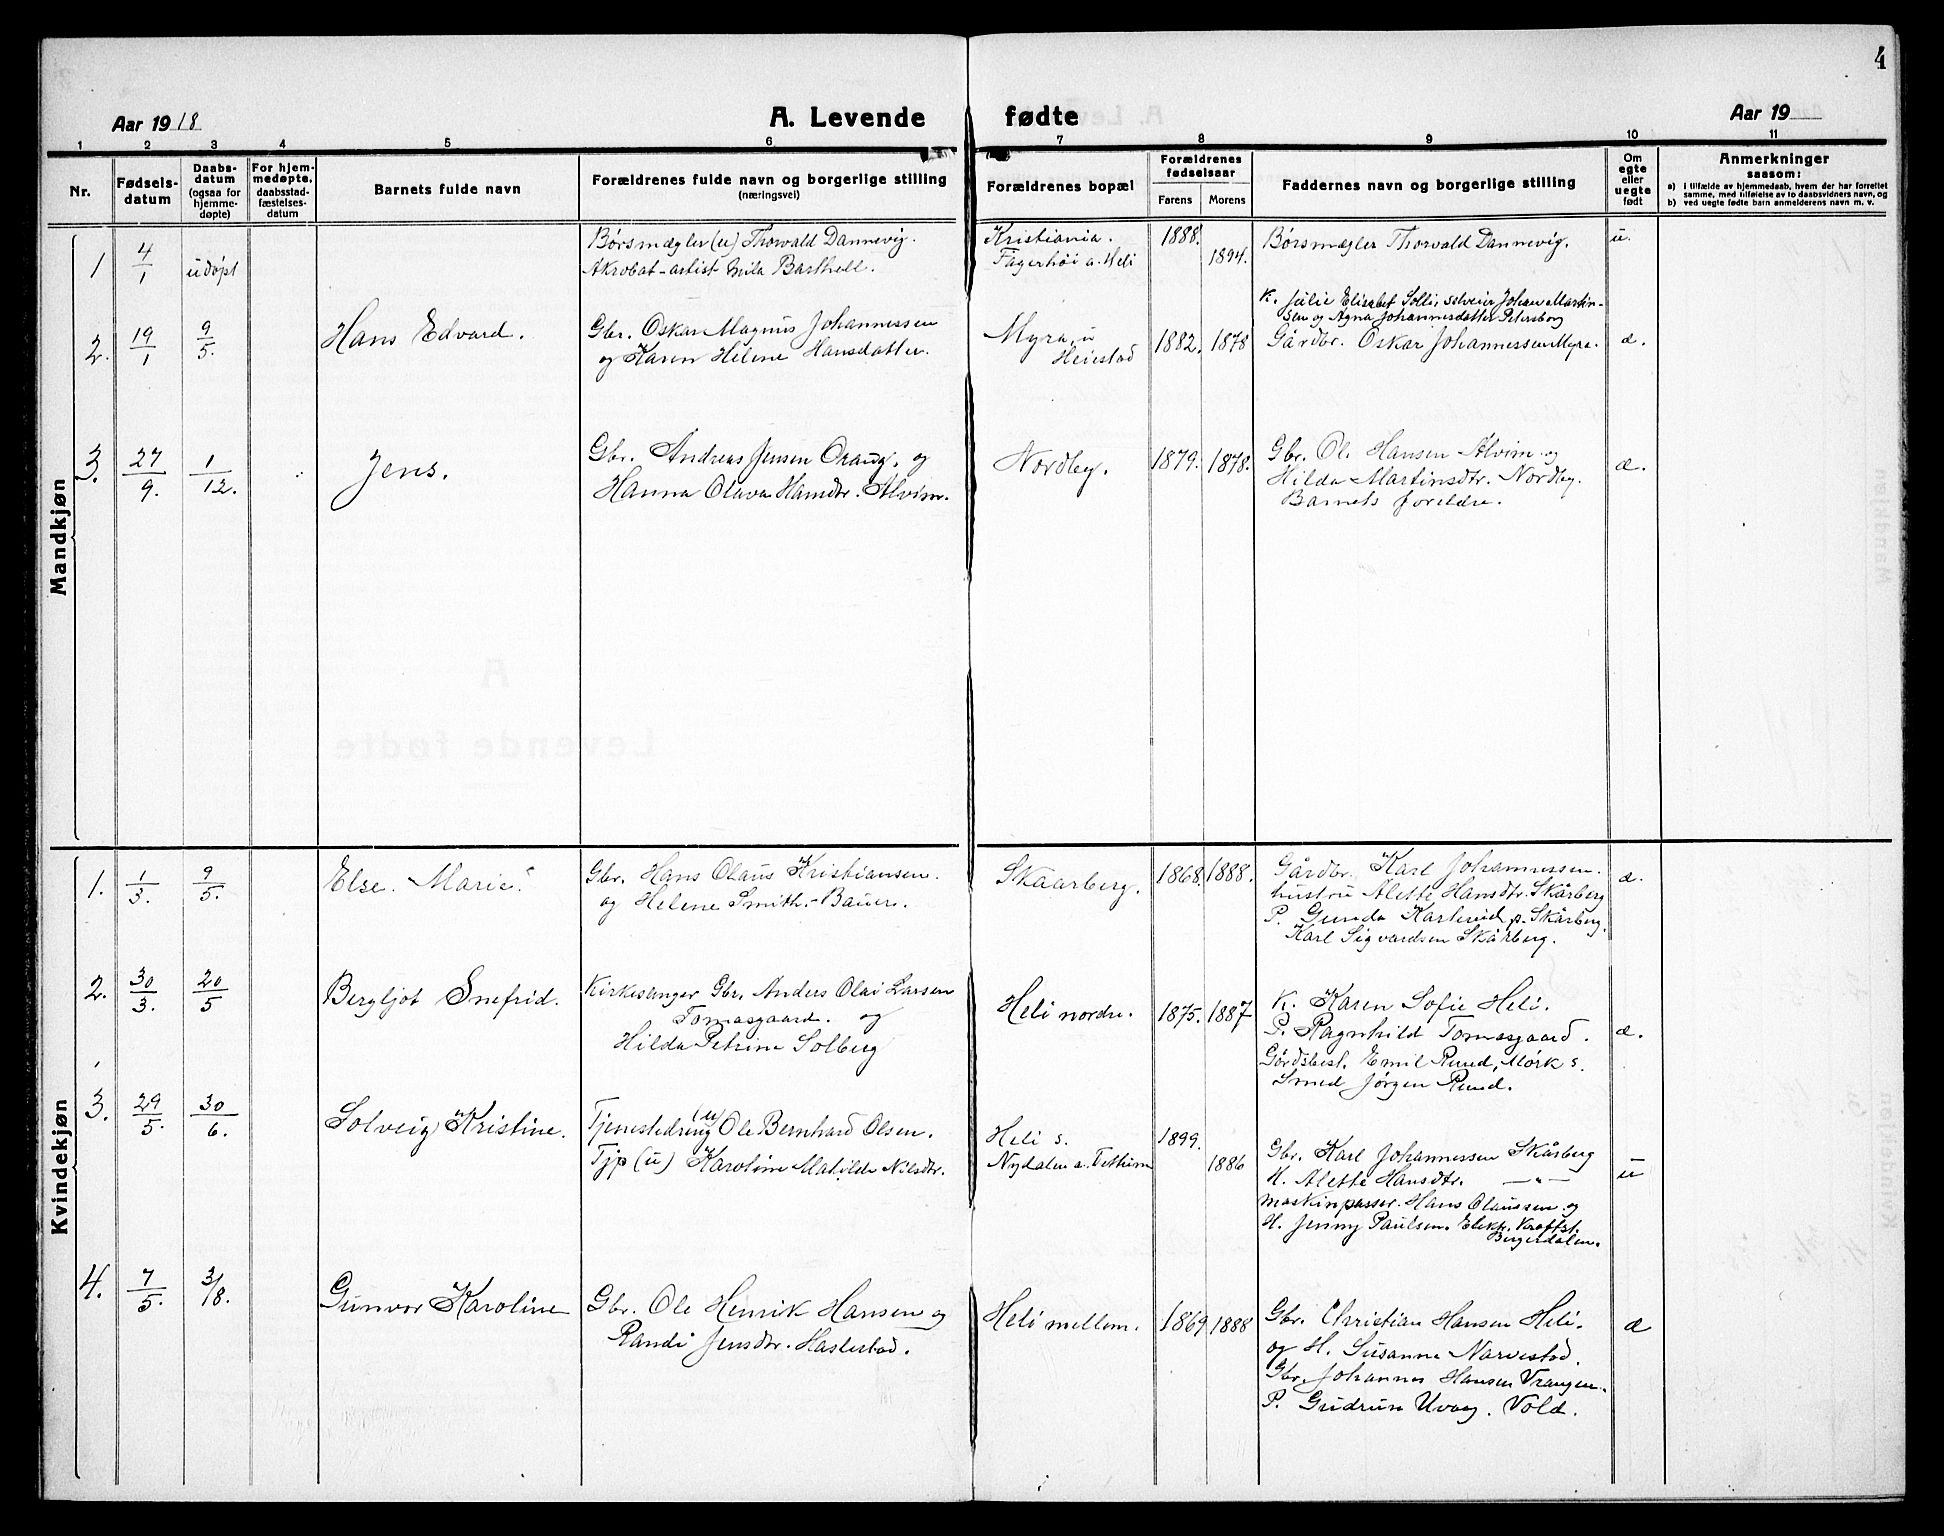 4
Aar 1918
A. Levende fødte
Aar 19
1 2 3 4 5 6 7 8 9 10 11
Nr.
Fødselsdatum
Daabsdatum (ogsaa for hjemmedøpte)
For hjemmedøpte, daabsstadfæstelsesdatum
Barnets fulde navn
Forældrenes fulde navn og borgerlige stilling
(næringsvei)
Forældrenes bopæl
Forældrenes fødselsaar
Farens Morens
Faddernes navn og borgerlige stilling
Om egte eller uegte født
Anmerkninger
saasom:
a) i tilfælde av hjemmedaab, hvem der har forrettet
samme, med tilføielse av to daabsvidners navn, og
b) ved uegte fødte barn anmelderens navn m. v.
Mandkjøn
1 4/1 udøpt
Børsmægler (u) Thorvald Dannevig.
Akrobat-artist Mila Barthell.
Kristiania.
Fagerhøi a. Heli
1888. 1894.
Børsmægler Thorvald Dannevig.
u.
2. 19/1 9/5.
Hans Edvard.
Gbr. Oskar Magnus Johannessen
og Karen Helene Hansdatter.
Myra, u
Heiestad
1882. 1878
K. Julie Elisabet Solli, selveier Johan Martin-
sen og Agna Johannesdatter Petersborg
Gårdbr. Oskar Johannessen Myra.
æ.
3. 27/9. 1/12.
Jens.
Gbr. Andreas Jensen Oraug. og
Hanna Olava Hansdtr. Alvim.
Nordby.
1879. 1878.
Gbr. Ole Hansen Alvim og
Hilda Martinsdtr. Nordby.
Barnets forældre.
æ.
Kvindekjøn
1. 1/3. 9/5.
Else Marie.
Gbr. Hans Olaus Kristiansen.
og Helene Smith-Bauer.
Skaarberg.
1868. 1888.
Gårdbr. Karl Johannessen.
hustru Alette Hansdtr. Skårberg
P. Gunda p. Skårberg.
Karl Sigvardsen Skårberg.
æ.
2. 30/3. 20/5
Bergljot Snefrid.
Kirkesanger Gbr. Anders Olai Larsen
Tomasgaard. og
Hilda Petrine Solberg
Heli nordre.
1875. 1887
K. Karen Sofie Heli.
P. Ragnhild Tomasgaard.
Gårdsbest. Emil Rund, Mørk s.
Smed Jørgen Rund.
æ.
3. 29/5. 30/6.
Solveig Kristine.
Tjenestedreng (u) Ole Bernhard Olsen.
Tjp (u) Karoline Matilde Nilsdtr.
Heli s.
Nydalen a. Tethum
1899. 1886
Gbr. Karl Johannessen Skårberg
H. Alette Hansdtr. —"—
Maskinpasser. Hans Olaussen og
H. Jenny Paulsen. Elektr. Kraftst.
Bingerdalen.
u
4. 7/5. 3/8.
Gunvor Karoline
Gbr. Ole Henrik Hansen og
Randi Jensdtr. Haslestad.
Heli mellem.
1869 1888
Gbr. Christian Hansen Heli.
og H. Susanne Narvestad.
Gbr. Johannes Hansen Vrangen.
P. Gudrun Uvaag. Vold.
æ